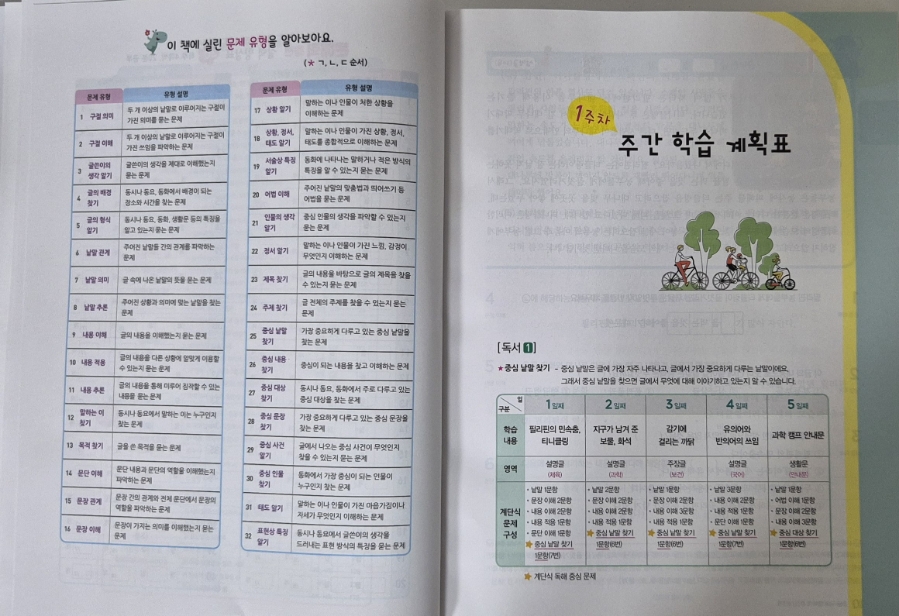 이 책에 실린 문제 유형을 알아보아요.
(★ ㄱ, ㄴ, ㄷ 순서)
문제 유형 유형 설명
1 구절 의미 두 개 이상의 낱말로 이루어지는 구절이
가진 의미를 묻는 문제
2 구절 이해 두 개 이상의 낱말로 이루어지는 구절이
가진 쓰임을 파악하는 문제
3 글쓴이의
생각 알기
글쓴이의 생각을 제대로 이해했는지
묻는 문제
4 글의 배경
찾기
동시나 동요, 동화에서 배경이 되는
장소와 시간을 찾는 문제
5 글의 형식
알기
동시나 동요, 동화, 생활문 등의 특징을
알고 있는지 묻는 문제
6 낱말 관계 주어진 낱말들 간의 관계를 파악하는
문제
7 낱말 의미 글 속에 나온 낱말의 뜻을 묻는 문제
8 낱말 추론 주어진 상황과 의미에 맞는 낱말을 찾는
문제
9 내용 이해 글의 내용을 이해했는지 묻는 문제
10 내용 적용 글의 내용을 다른 상황에 알맞게 이용할
수 있는지 묻는 문제
11 내용 추론 글의 내용을 통해 미루어 짐작할 수 있는
내용을 묻는 문제
12 말하는 이
찾기
동시나 동요에서 말하는 이는 누구인지
찾는 문제
13 목적 찾기 글을 쓴 목적을 묻는 문제
14 문단 이해 문단 내용과 문단의 역할을 이해했는지
파악하는 문제
15 문장 관계 문장 간의 관계와 전체 문단에서 문장의
역할을 파악하는 문제
16 문장 이해 문장이 가지는 의미를 이해했는지 묻는
문제
문제 유형 유형 설명
17 상황 알기 말하는 이나 인물이 처한 상황을
이해하는 문제
18 상황, 정서,
태도 알기
말하는 이나 인물이 가진 상황, 정서,
태도를 종합적으로 이해하는 문제
19 서술상 특징
알기
동화에 나타나는 말하거나 적은 방식의
특징을 알 수 있는지 묻는 문제
20 어법 이해 주어진 낱말의 맞춤법과 띄어쓰기 등
어법을 묻는 문제
21 인물의 생각
알기
중심 인물의 생각을 파악할 수 있는지
묻는 문제
22 정서 알기 말하는 이나 인물이 가진 느낌, 감정이
무엇인지 이해하는 문제
23 제목 찾기 글의 내용을 바탕으로 글의 제목을 찾을
수 있는지 묻는 문제
24 주제 찾기 글 전체의 주제를 찾을 수 있는지 묻는
문제
25 중심 낱말
찾기
가장 중요하게 다루고 있는 중심 낱말을
찾는 문제
26 중심 내용
찾기
중심이 되는 내용을 찾고 이해하는 문제
27 중심 대상
찾기
동시나 동요, 동화에서 주로 다루고 있는
중심 대상을 찾는 문제
28 중심 문장
찾기
가장 중요하게 다루고 있는 중심 문장을
찾는 문제
29 중심 사건
알기
글에서 나오는 중심 사건이 무엇인지
찾을 수 있는지 묻는 문제
30 중심 인물
찾기
동화에서 가장 중심이 되는 인물이
누구인지 찾는 문제
31 태도 알기 말하는 이나 인물이 가진 마음가짐이나
자세가 무엇인지 이해하는 문제
32 표현상 특징
알기
동시나 동요에서 글쓴이의 생각을
드러내는 표현 방식의 특징을 묻는 문제
1주차
주간 학습 계획표
[독서 1]
★ 중심 낱말 찾기 - 중심 낱말은 글에 가장 자주 나타나고, 글에서 가장 중요하게 다루는 낱말이에요.
그래서 중심 낱말을 찾으면 글에서 무엇에 대해 이야기하고 있는지 알 수 있습니다.
구분 일 1일째 2일째 3일째 4일째 5일째
학습
내용
필리핀의 민속춤,
티니클링
지구가 남겨 준
보물, 화석
감기에
걸리는 까닭
유의어와
반의어의 쓰임
과학 캠프 안내문
영역 설명글
(체육)
설명글
(과학)
주장글
(보건)
설명글
(국어)
생활문
(안내문)
계단식
문제
구성
• 낱말 1문항
• 문장 이해 2문항
• 내용 이해 2문항
• 내용 적용 1문항
• 문단 이해 1문항
★ 중심 낱말 찾기
1문항(7번)
• 낱말 2문항
• 문장 이해 2문항
• 내용 이해 2문항
• 내용 적용 1문항
★ 중심 낱말 찾기
1문항(8번)
• 낱말 1문항
• 문장 이해 2문항
• 내용 이해 3문항
• 내용 적용 1문항
★ 중심 낱말 찾기
1문항(6번)
• 낱말 3문항
• 문장 이해 2문항
• 내용 이해 1문항
• 문단 이해 1문항
★ 중심 낱말 찾기
1문항(7번)
• 낱말 1문항
• 어법 이해 1문항
• 문장 이해 2문항
• 내용 이해 3문항
★ 중심 대상 찾기
1문항(8번)
★ 계단식 독해 중심 문제